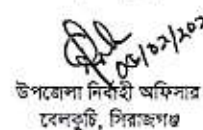 ০৫/০২/২০২
উপজেলা নির্বাহী অফিসার
বেলকুচি, সিরাজগঞ্জ